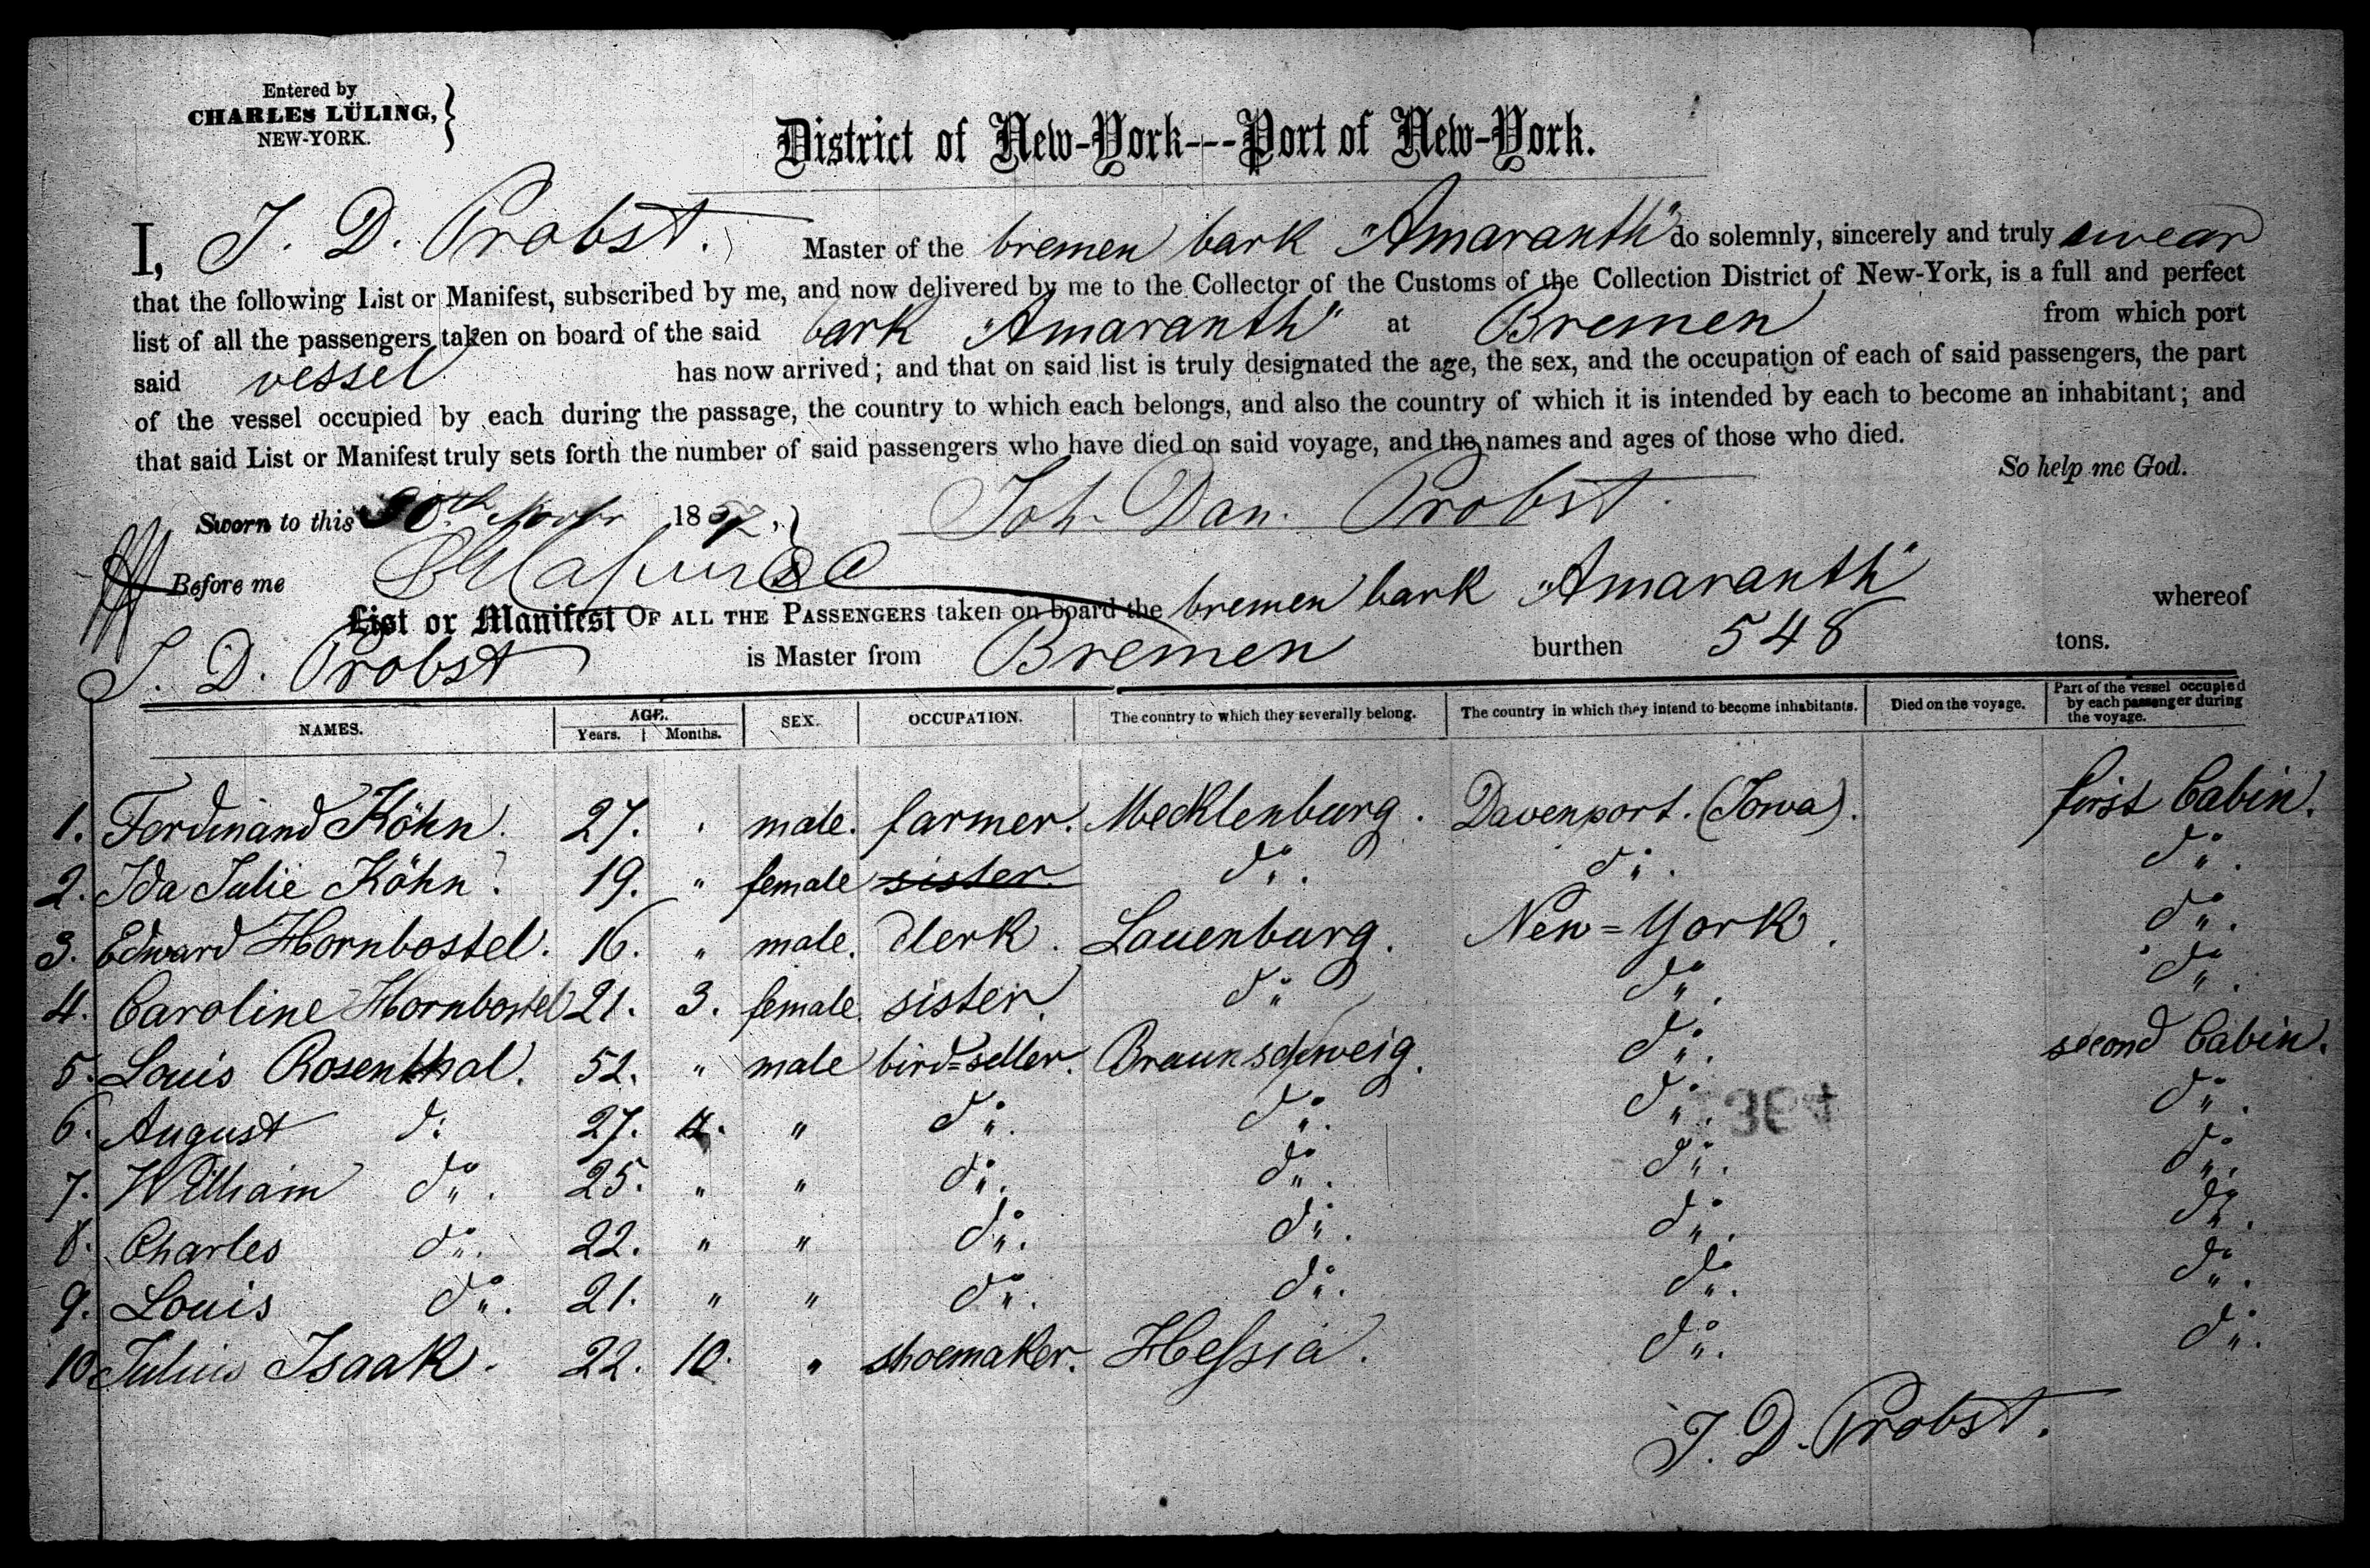 Entered by
CHARLES LÜLING,
NEW-YORK.
District of New-York---Port of New-York.
I, J. D. Probst. Master of the bremen bark "Amaranth" do solemnly, sincerely and truly swear
that the following List or Manifest, subscribed by me, and now delivered by me to the Collector of the Customs of the Collection District of New-York, is a full and perfect
list of all the passengers taken on board of the said bark "Amaranth" at Bremen from which port
said vessel has now arrived; and that on said list is truly designated the age, the sex, and the occupation of each of said passengers, the part
of the vessel occupied by each during the passage, the country to which each belongs, and also the country of which it is intended by each to become an inhabitant; and
that said List or Manifest truly sets forth the number of said passengers who have died on said voyage, and the names and ages of those who died.
So help me God.
Sworn to this 30th 185 Joh. Dan. Probst.
Before me
List or Manifest OF ALL THE PASSENGERS taken on board the bremen bark "Amaranth" whereof
J. D. Probst is Master from Bremen burthen 548 tons.
NAMES. AGE. Years. Months. SEX. OCCUPATION. The country to which they severally belong. The country in which they intend to become inhabitants. Died on the voyage. Part of the vessel occupied by each passenger during the voyage.
1. Ferdinand Köhn. 27. " male. farmer. Mecklenburg. Davenport. (Iowa). first Cabin.
2. Ida Julie Köhn. 19. " female sister do. do. do.
3. Edward Hornbostel. 16. " male. clerk. Lauenburg. New=York. do.
4. Caroline Hornbostel 21. 3. female. sister. do do. do.
5. Louis Rosenthal. 52. " male bird=seller. Braunschweig. do. second Cabin.
6. August do 27. " do. do. do. do.
7. William do. 25. " " do. do. do. do.
8. Charles do. 22. " " do. do. do. do.
9. Louis do. 21. " " do. do. do. do.
10. Julius Isaak. 22. 10. " shoemaker. Hessia. do. do.
J. D. Probst.